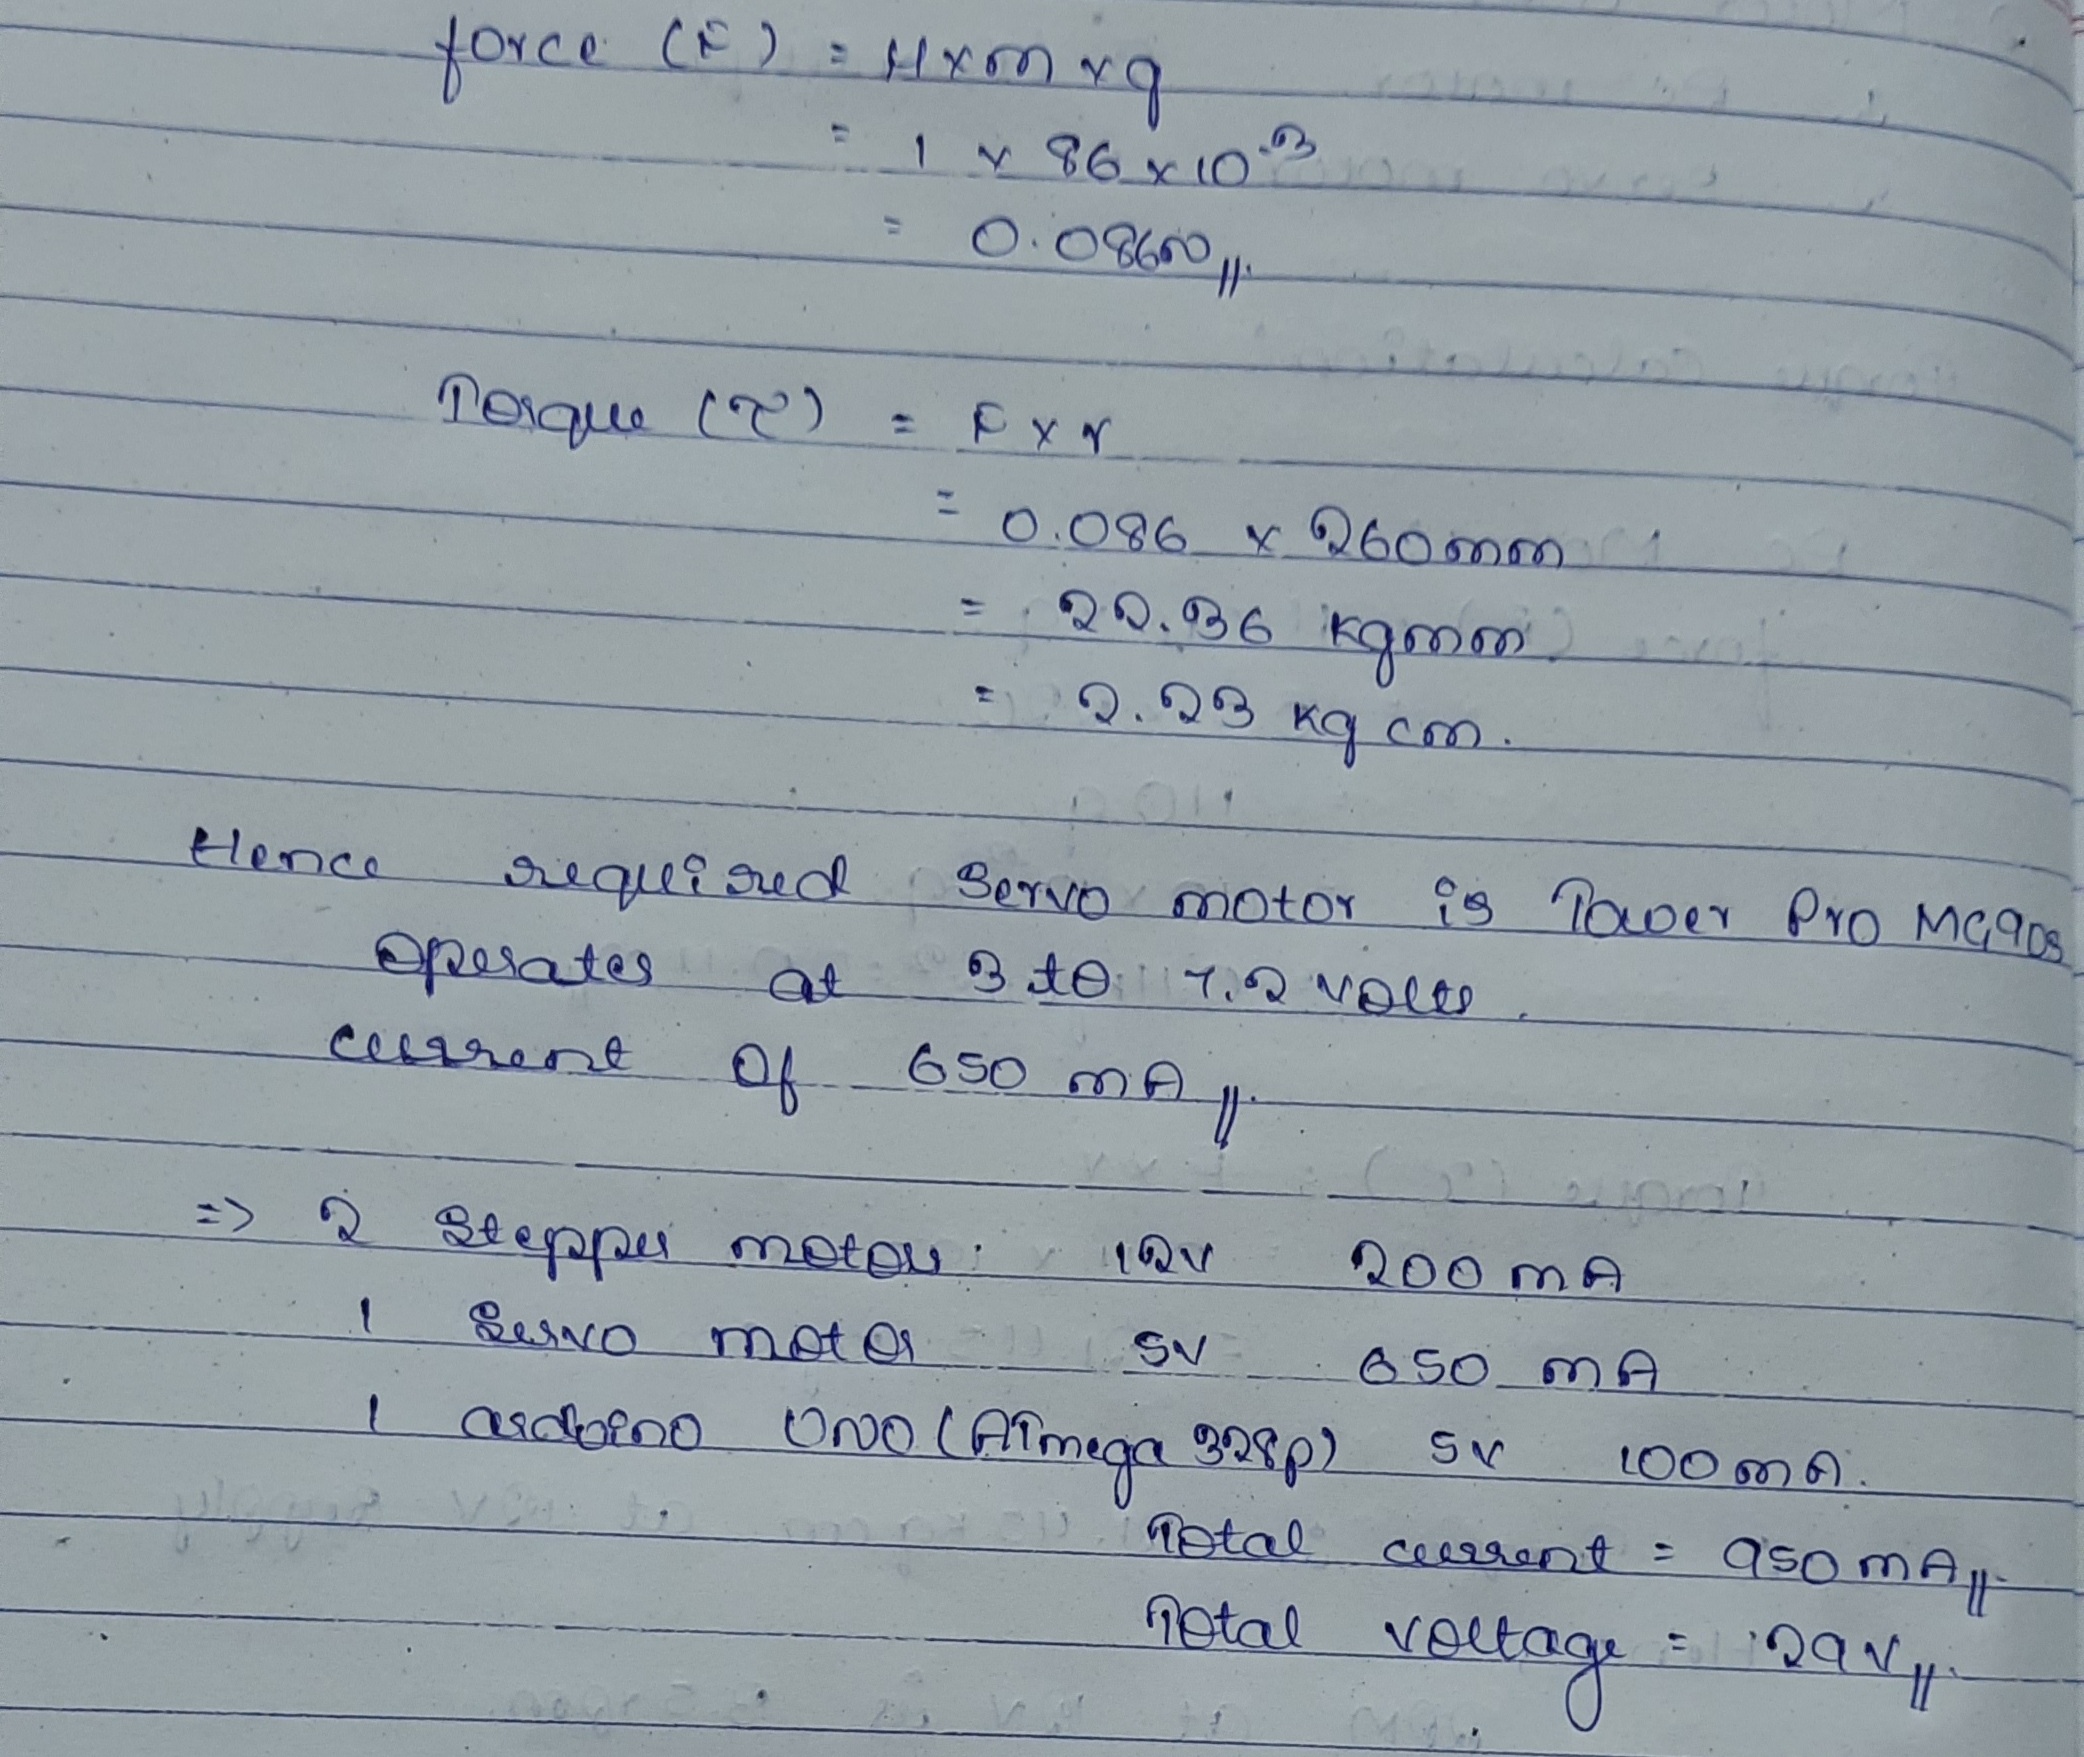 force (F) = μ x m x g
= 1 x 86 x 10⁻³
= 0.086N //.
Torque (τ) = F x r
= 0.086 x 260mm
= 22.36 kgmm
= 2.23 kg cm.
Hence required servo motor is Tower Pro MG90s
operates at 3 to 7.2 volts.
current of 650 mA //.
=> 2 Stepper motor: 12v 200 mA
1 Servo motor 5v 650 mA
1 arduino UNO (ATmega 328p) 5v 100mA.
Total current = 950 mA //.
Total voltage = 29v //.